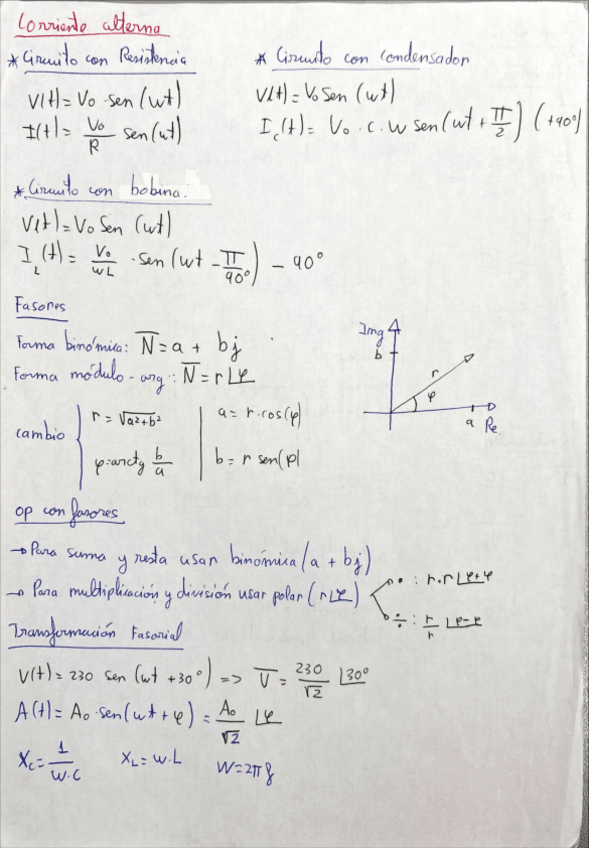 Corriente alterna
* Circuito con Resistencia
V(t) = Vo · sen (wt)
I(t) = Vo/R sen(wt)
* Circuito con condensador
V(t) = Vo Sen (wt)
Ic(t) = Vo · c · w sen(wt + π/2) (+90°)
* Circuito con bobina:
V(t) = Vo Sen (wt)
IL(t) = Vo/wL · sen(wt - π/90°) - 90°
Fasores
Forma binómica: N = a + bj
Forma módulo - arg: N = r∠φ
cambio
r = √a²+b²
φ = arctg b/a
a = r · cos(φ)
b = r sen(φ)
Img
b
r
φ
a
Re
op con fasores
→ Para suma y resta usar binómica (a + bj)
→ Para multiplicación y división usar polar (r∠φ)
· : r · r ∠φ+φ
÷ : r/r ∠φ-φ
Transformación Fasorial
V(t) = 230 sen (wt + 30°) => V = 230/√2 ∠30°
A(t) = Ao · sen(wt + φ) = Ao/√2 ∠φ
Xc = 1/w·c XL = w·L W = 2π f